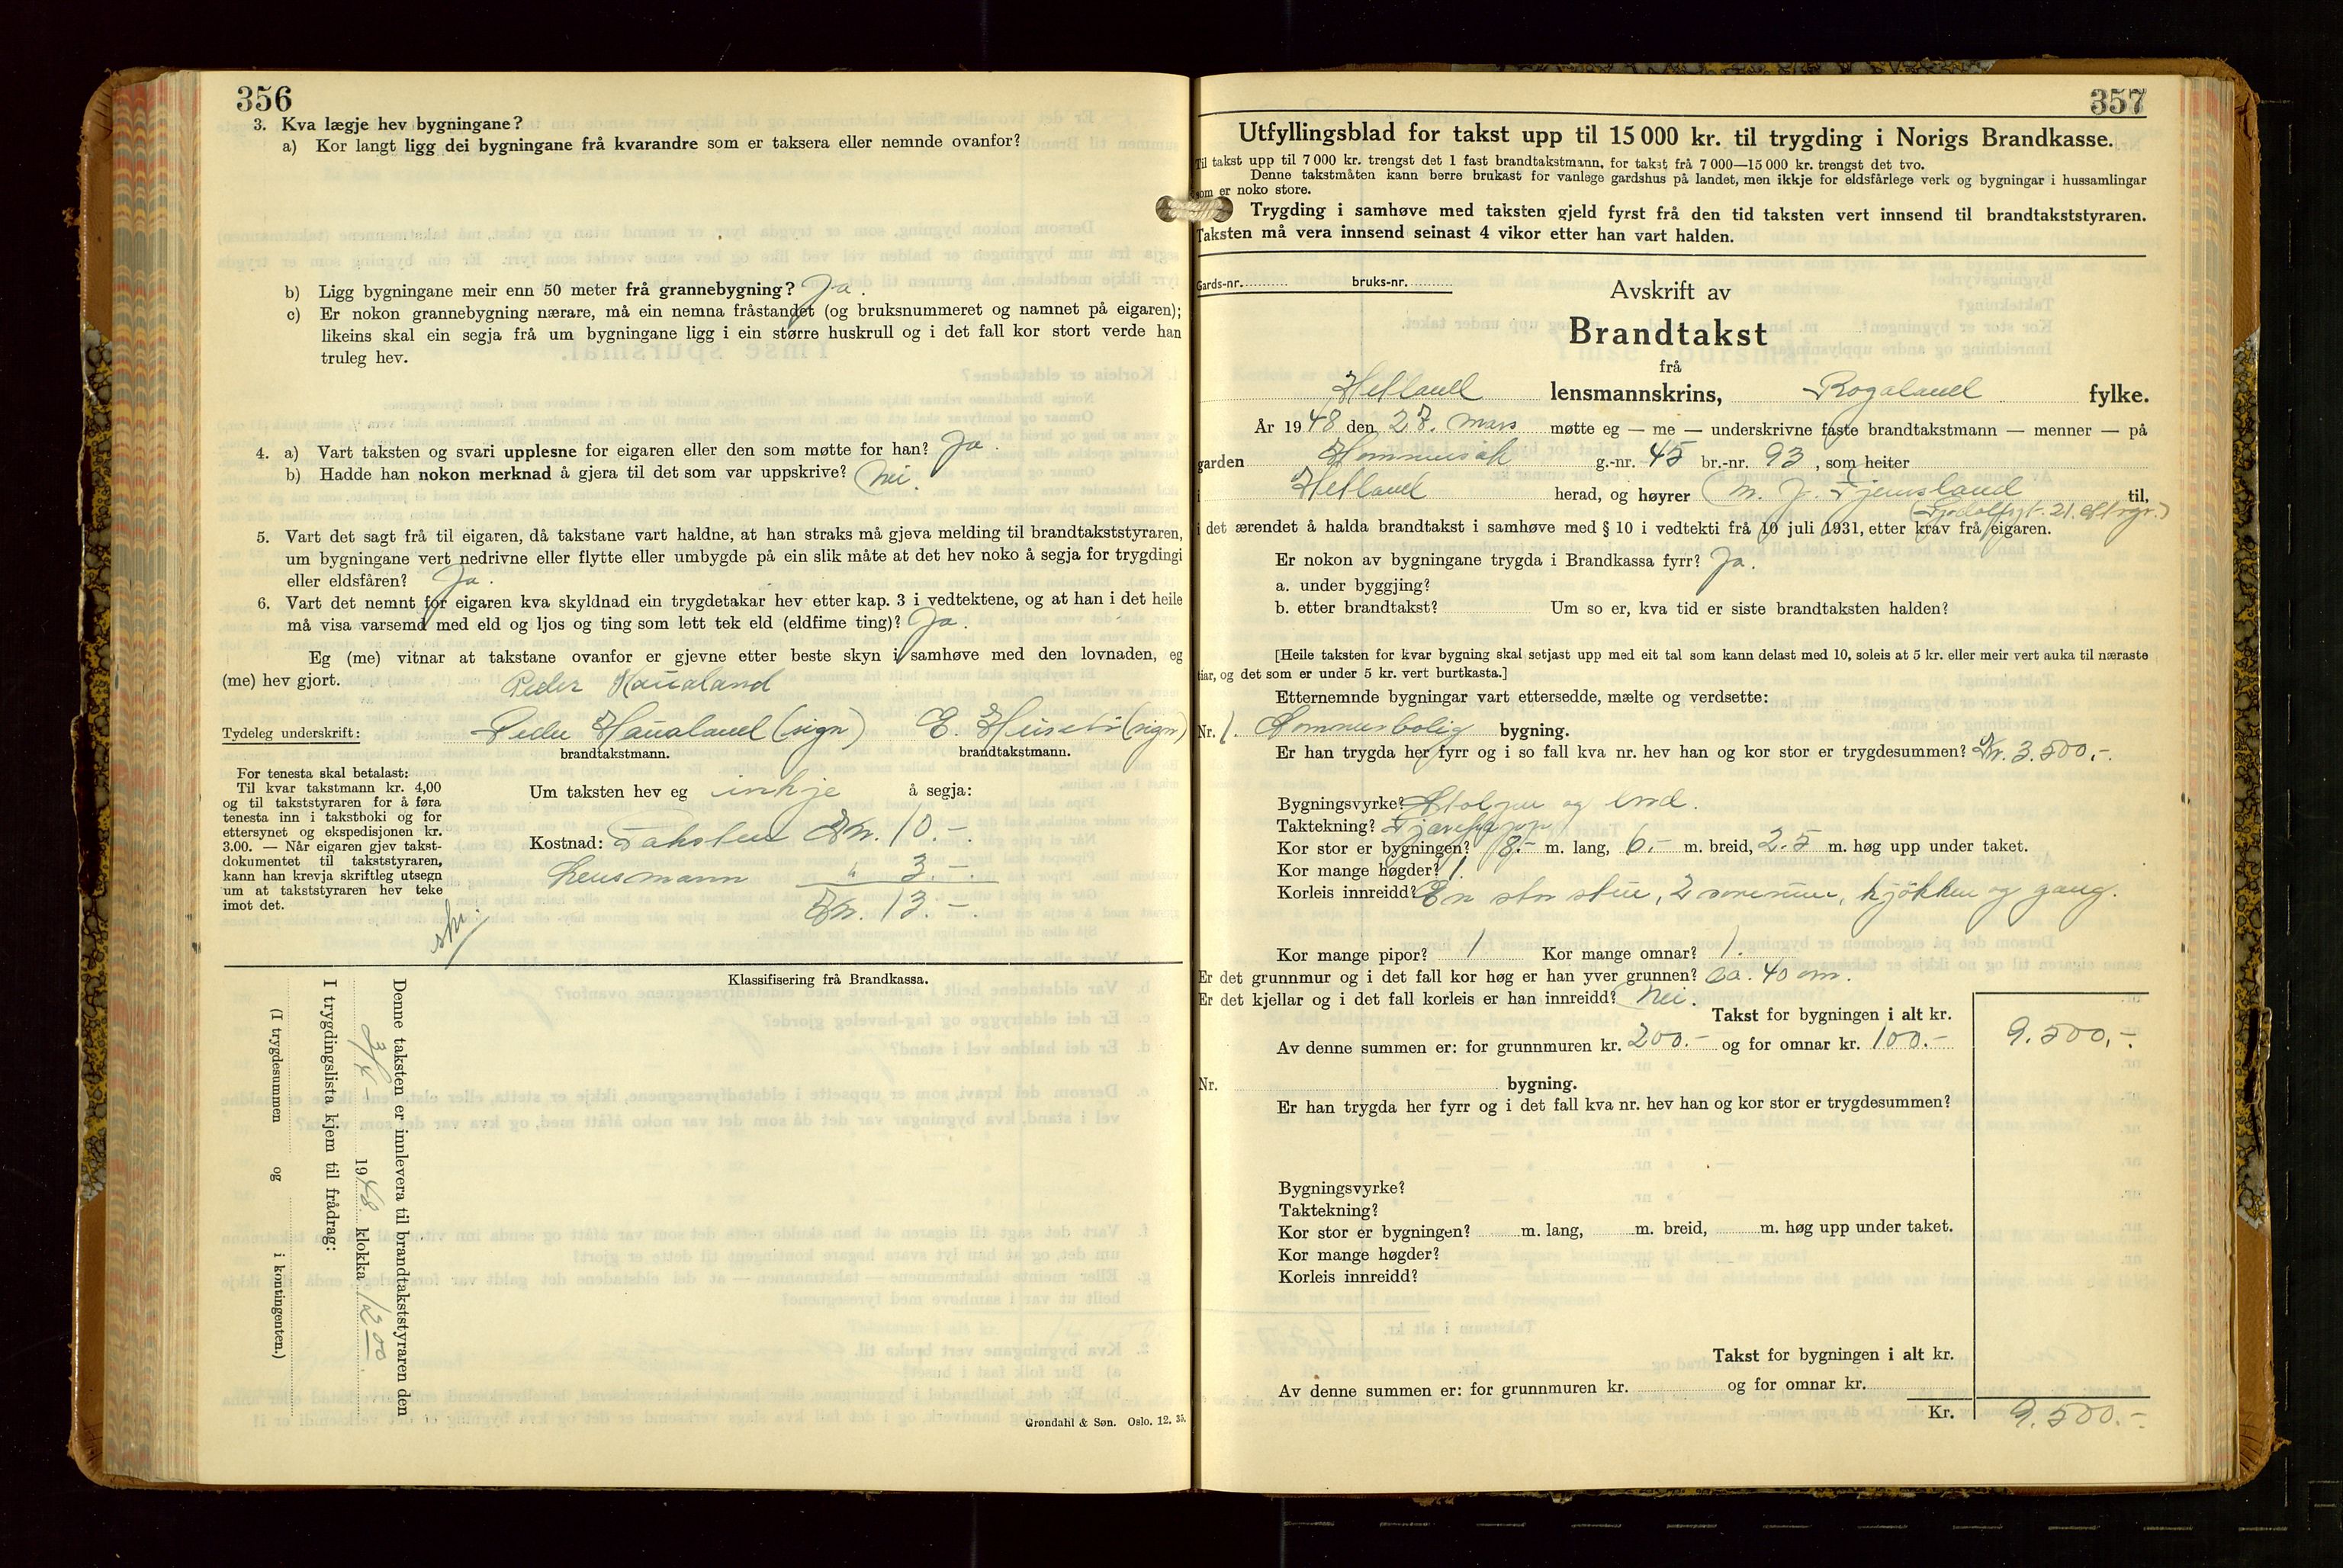 356
3. Kva lægje hev bygningane?
a) Kor langt ligg dei bygningane frå kvarandre som er taksera eller nemnde ovanfor?
b) Ligg bygningane meir enn 50 meter frå grannebygning? Ja.
c) Er nokon grannebygning nærare, må ein nemna fråstandet (og bruksnummeret og namnet på eigaren);
likeins skal ein segja frå um bygningane ligg i ein større huskrull og i det fall kor stort verde han
truleg hev.
4. a) Vart taksten og svari upplesne for eigaren eller den som møtte for han? Ja.
b) Hadde han nokon merknad å gjera til det som var uppskrive? Nei.
5. Vart det sagt frå til eigaren, då takstane vart haldne, at han straks må gjeva melding til brandtakststyraren,
um bygningane vert nedrivne eller flytte eller umbygde på ein slik måte at det hev noko å segja for trygdingi
eller eldsfåren? Ja.
6. Vart det nemnt for eigaren kva skyldnad ein trygdetakar hev etter kap. 3 i vedtektene, og at han i det heile
må visa varsemd med eld og ljos og ting som lett tek eld (eldfime ting)? Ja.
Eg (me) vitnar at takstane ovanfor er gjevne etter beste skyn i samhøve med den lovnaden, eg
(me) hev gjort.
Peder Haualand
Tydeleg underskrift: Peder Haualand (sign) E. Husebø (sign)
brandtakstmann. brandtakstmann.
For tenesta skal betalast:
Til kvar takstmann kr. 4,00
og til takststyraren for å føra
tenesta inn i takstboki og for
ettersynet og ekspedisjonen kr.
3.00. — Når eigaren gjev takst-
dokumentet til takststyraren,
kann han krevja skriftleg utsegn
um at takststyraren hev teke
imot det.
Um taksten hev eg inkje å segja:
Kostnad: Taksten Kr. 10.-
Lensmann " 3.-
Kr. 13.-
skr.
Klassifisering frå Brandkassa.
Denne taksten er innlevera til brandtakststyraren den
3/4 - 1948 klokka 12 00
I trygdingslista kjem til frådrag:
(I trygdesummen og i kontingenten.)
Grøndahl & Søn. Oslo. 12. 35.
357
Utfyllingsblad for takst upp til 15 000 kr. til trygding i Norigs Brandkasse.
Til takst upp til 7 000 kr. trengst det 1 fast brandtakstmann, for takst frå 7 000—15 000 kr. trengst det tvo.
Denne takstmåten kann berre brukast for vanlege gardshus på landet, men ikkje for eldsfårlege verk og bygningar i hussamlingar
som er noko store.
Trygding i samhøve med taksten gjeld fyrst frå den tid taksten vert innsend til brandtakststyraren.
Taksten må vera innsend seinast 4 vikor etter han vart halden.
Gards-nr. bruks-nr.
Avskrift av
Brandtakst
frå
Hetland lensmannskrins, Rogaland fylke.
År 1948 den 27. mars møtte eg — me — underskrivne faste brandtakstmann — menner — på
garden Hommersåk g.-nr. 45 br.-nr. 93, som heiter
i Hetland herad, og høyrer M. J. Tjemsland til,
i det ærendet å halda brandtakst i samhøve med § 10 i vedtekti frå 10 juli 1931, etter krav frå eigaren.
Er nokon av bygningane trygda i Brandkassa fyrr? Ja.
a. under byggjing?
b. etter brandtakst? Um so er, kva tid er siste brandtaksten halden?
[Heile taksten for kvar bygning skal setjast upp med eit tal som kann delast med 10, soleis at 5 kr. eller meir vert auka til næraste
tiar, og det som er under 5 kr. vert burtkasta.]
Etternemnde bygningar vart ettersedde, mælte og verdsette:
Nr. 1. Sommerbolig bygning.
Er han trygda her fyrr og i so fall kva nr. hev han og kor stor er trygdesummen? Kr. 3.500,-.
Bygningsvyrke? Stolper og bord.
Taktekning? Tjærepapp
Kor stor er bygningen? 8.- m. lang, 6.- m. breid, 2.5 m. høg upp under taket.
Kor mange høgder? 1.
Korleis innreidd? En stor stue, 2 soverum, kjøkken og gang.
Kor mange pipor? 1 Kor mange omnar? 1.
Er det grunnmur og i det fall kor høg er han yver grunnen? ca. 40 cm.
Er det kjellar og i det fall korleis er han innreidd? Nei.
Takst for bygningen i alt kr.
Av denne summen er: for grunnmuren kr. 200.- og for omnar kr. 100.- 9.500,-.
Nr. bygning.
Er han trygda her fyrr og i det fall kva nr. hev han og kor stor er trygdesummen?
Bygningsvyrke?
Taktekning?
Kor stor er bygningen? m. lang, m. breid, m. høg upp under taket.
Kor mange høgder?
Korleis innreidd?
Takst for bygningen i alt kr.
Av denne summen er: for grunnmuren kr. og for omnar kr.
Kr. 9.500.-